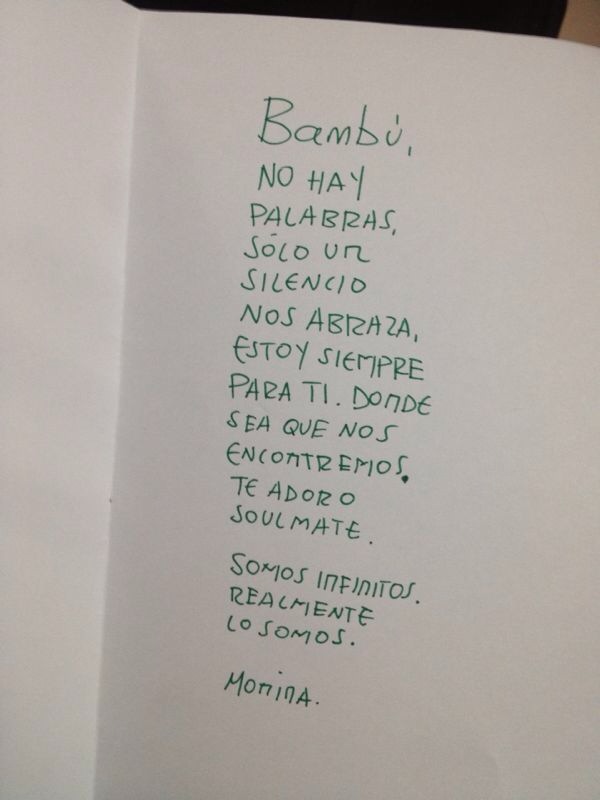 Bambú,
NO HAY
PALABRAS,
SÓLO UN
SILENCIO
NOS ABRAZA,
ESTOY SIEMPRE
PARA TI. DONDE
SEA QUE NOS
ENCONTREMOS.
TE ADORO
SOULMATE.
SOMOS INFINITOS.
REALMENTE
LO SOMOS.
Monina.